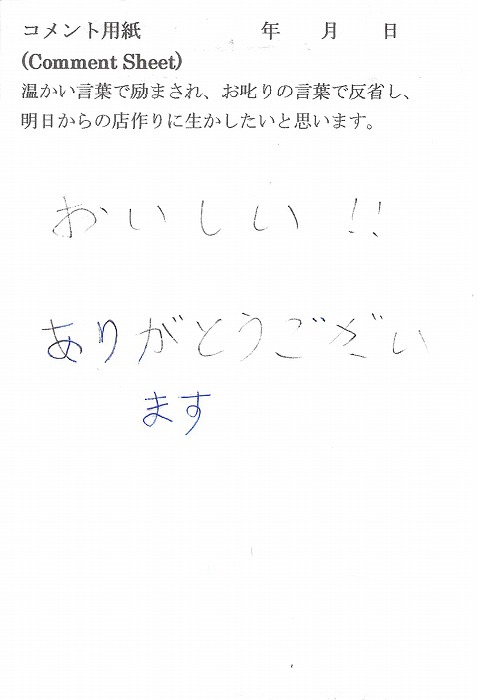 コメント用紙 年 月 日
(Comment Sheet)
温かい言葉で励まされ、お叱りの言葉で反省し、
明日からの店作りに生かしたいと思います。
おいしい!!
ありがとうござい
ます